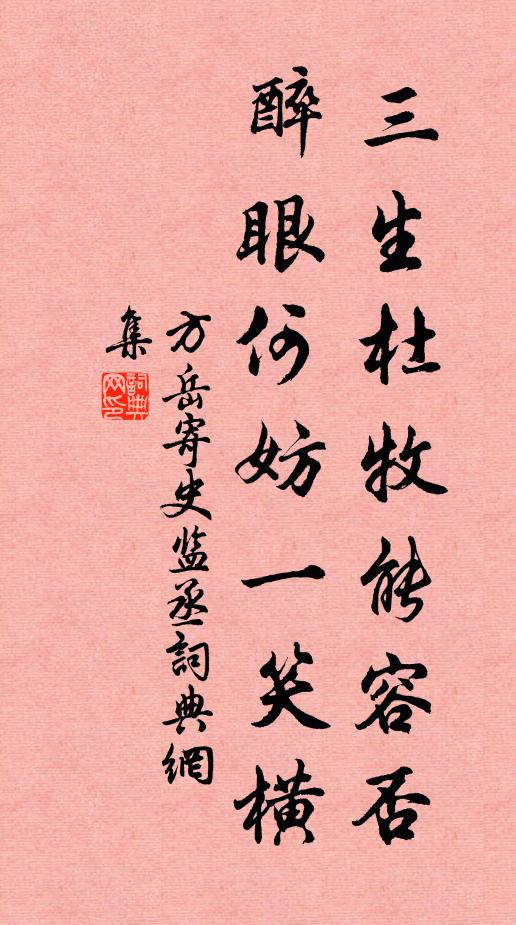 三生杜牧能容否
醉眼何妨一笑橫
方岳寄史監丞詞典網
集
詞典
网印